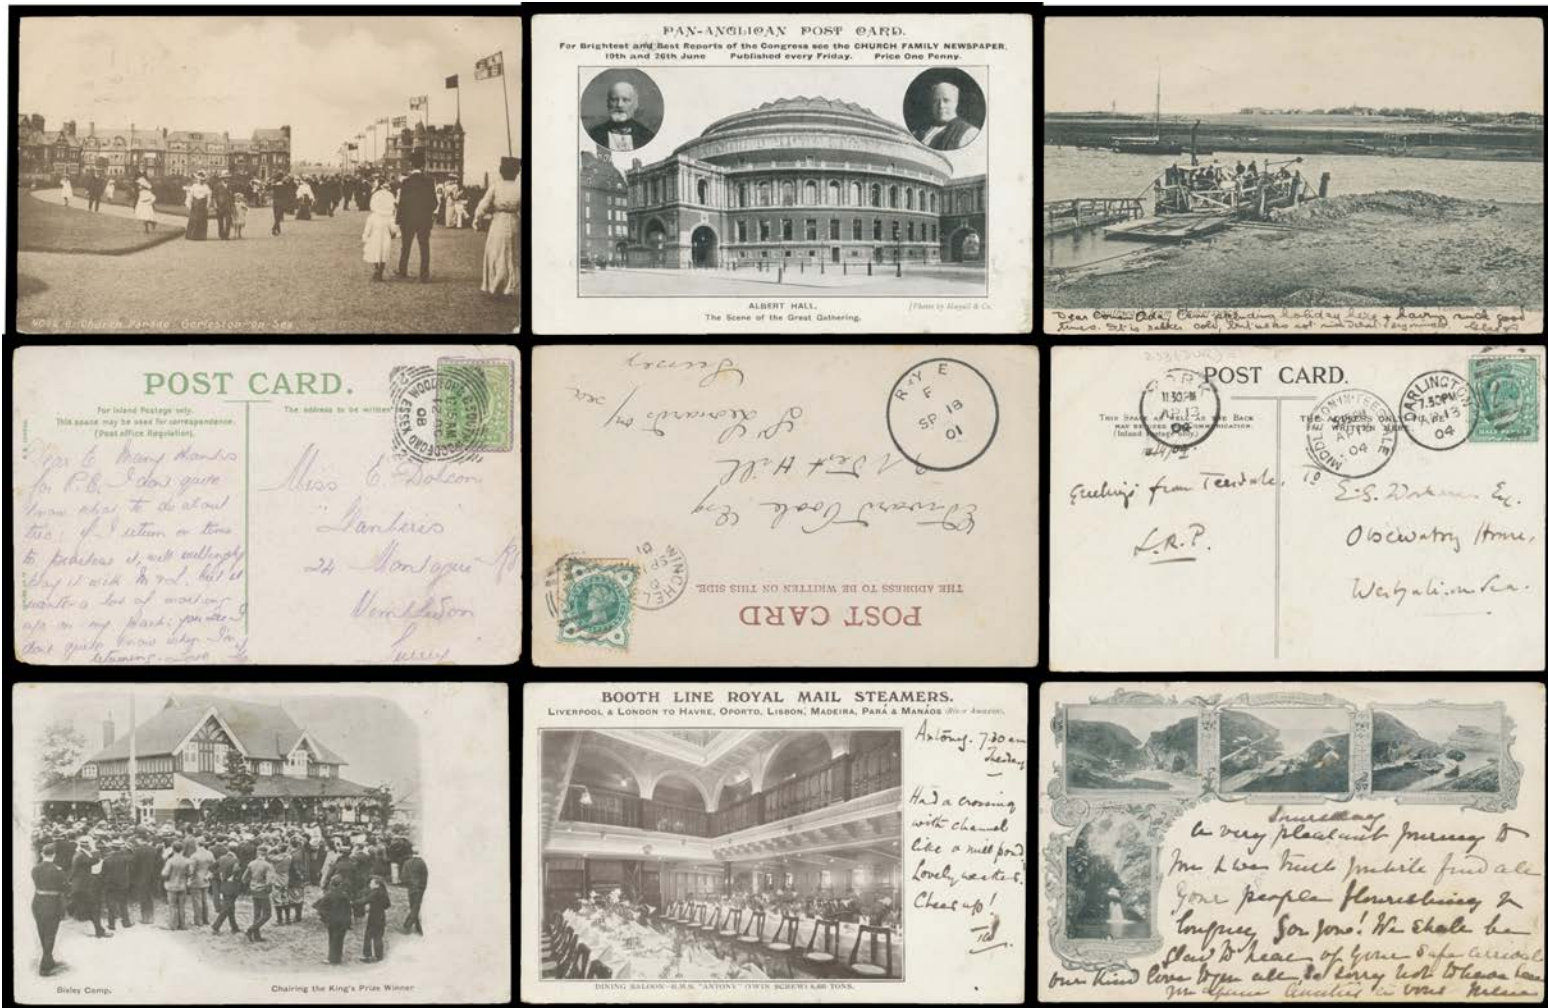 Church Parade Gorleston-on-Sea
PAN-ANGLICAN POST CARD.
For Brightest and Best Reports of the Congress see the CHURCH FAMILY NEWSPAPER,
19th and 26th June Published every Friday. Price One Penny.
ALBERT HALL,
[Photo by
The Scene of the Great Gathering.
Dear Cousin Am spending holiday here & having such good
times. It is rather cold, but
POST CARD.
For Inland Postage only.
This space may be used for correspondence.
(Post office Regulation).
The address to be written
WOODFORD ESSEX
DE 21
08
Dear E Many thanks
for P.C. I don't quite
know what to do about
I return in time
to practise it, will willingly
play it with but it
wants a lot of
on my part; you see I
don't quite know when I'm
returning. Love
Miss E. Dobson
"Llanberis"
24 Montague Rd
Wimbledon
Surrey
POST CARD
THE ADDRESS TO BE WRITTEN ON THIS SIDE.
WINCHEL
SP
01
Edward Cook Esq
West Hill
St Leonards on
Sea
Sussex
RYE
F
SP 18
01
POST CARD.
THIS SPACE AS WELL AS THE BACK
MAY BE USED FOR COMMUNICATION.
(Inland Postage Only)
THE ADDRESS ONLY TO BE
WRITTEN HERE.
11.30PM
AP 13
04
MIDDLETON-IN-TEESDALE
AP 13
04
DARLINGTON
7.30PM
AP 13
04
Greetings from Teesdale,
L.R.P.
To
E.S. Esq.
Observatory House,
Westgate-on-Sea.
Bisley Camp.
Chairing the King's Prize Winner
BOOTH LINE ROYAL MAIL STEAMERS.
LIVERPOOL & LONDON TO HAVRE, OPORTO, LISBON, MADEIRA, PARÁ & MANÁOS (River Amazon).
Antony. 7.30 am
Tuesday
Had a crossing
with channel
like a mill pond
Lovely weather.
Cheer up!
DINING SALOON—R.M.S. "ANTONY" (TWIN SCREW) 6,400 TONS.
Thursday
A very pleasant journey to
find all
your people flourishing &
longing for you! We shall be
glad to hear of your safe arrival
our kind love to you all So sorry not to have been